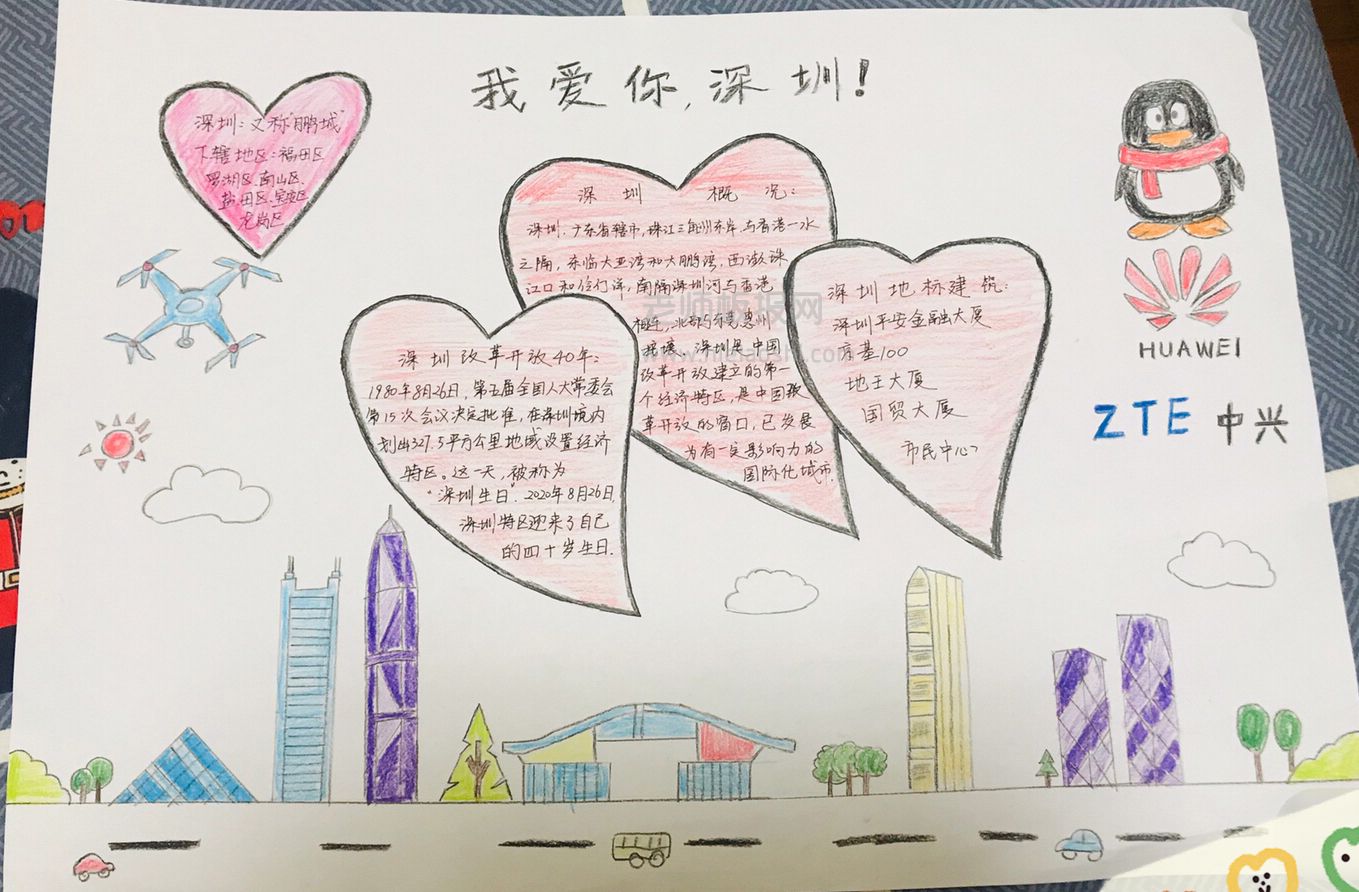 我爱你,深圳!
深圳:又称"鹏城"
下辖地区:福田区
罗湖区、南山区、
盐田区、宝安区
龙岗区
深圳概况:
深圳,广东省辖市,珠江三角洲东岸,与香港一水
之隔,东临大亚湾和大鹏湾,西濒珠
江口和伶仃洋,南隔深圳河与香港
相连,北部与东莞惠州
接壤。深圳是中国
改革开放建立的第一
个经济特区,是中国改
革开放的窗口,已发展
为有一定影响力的
国际化城市.
深圳改革开放40年:
1980年8月26日,第五届全国人大常委会
第15次会议决定批准,在深圳境内
划出327.5平方公里地域设置经济
特区。这一天,被称为
"深圳生日".2020年8月26日,
深圳特区迎来了自己
的四十岁生日.
深圳地标建筑:
深圳平安金融大厦
京基100
地王大厦
国贸大厦
市民中心
HUAWEI
ZTE中兴
老师板报网